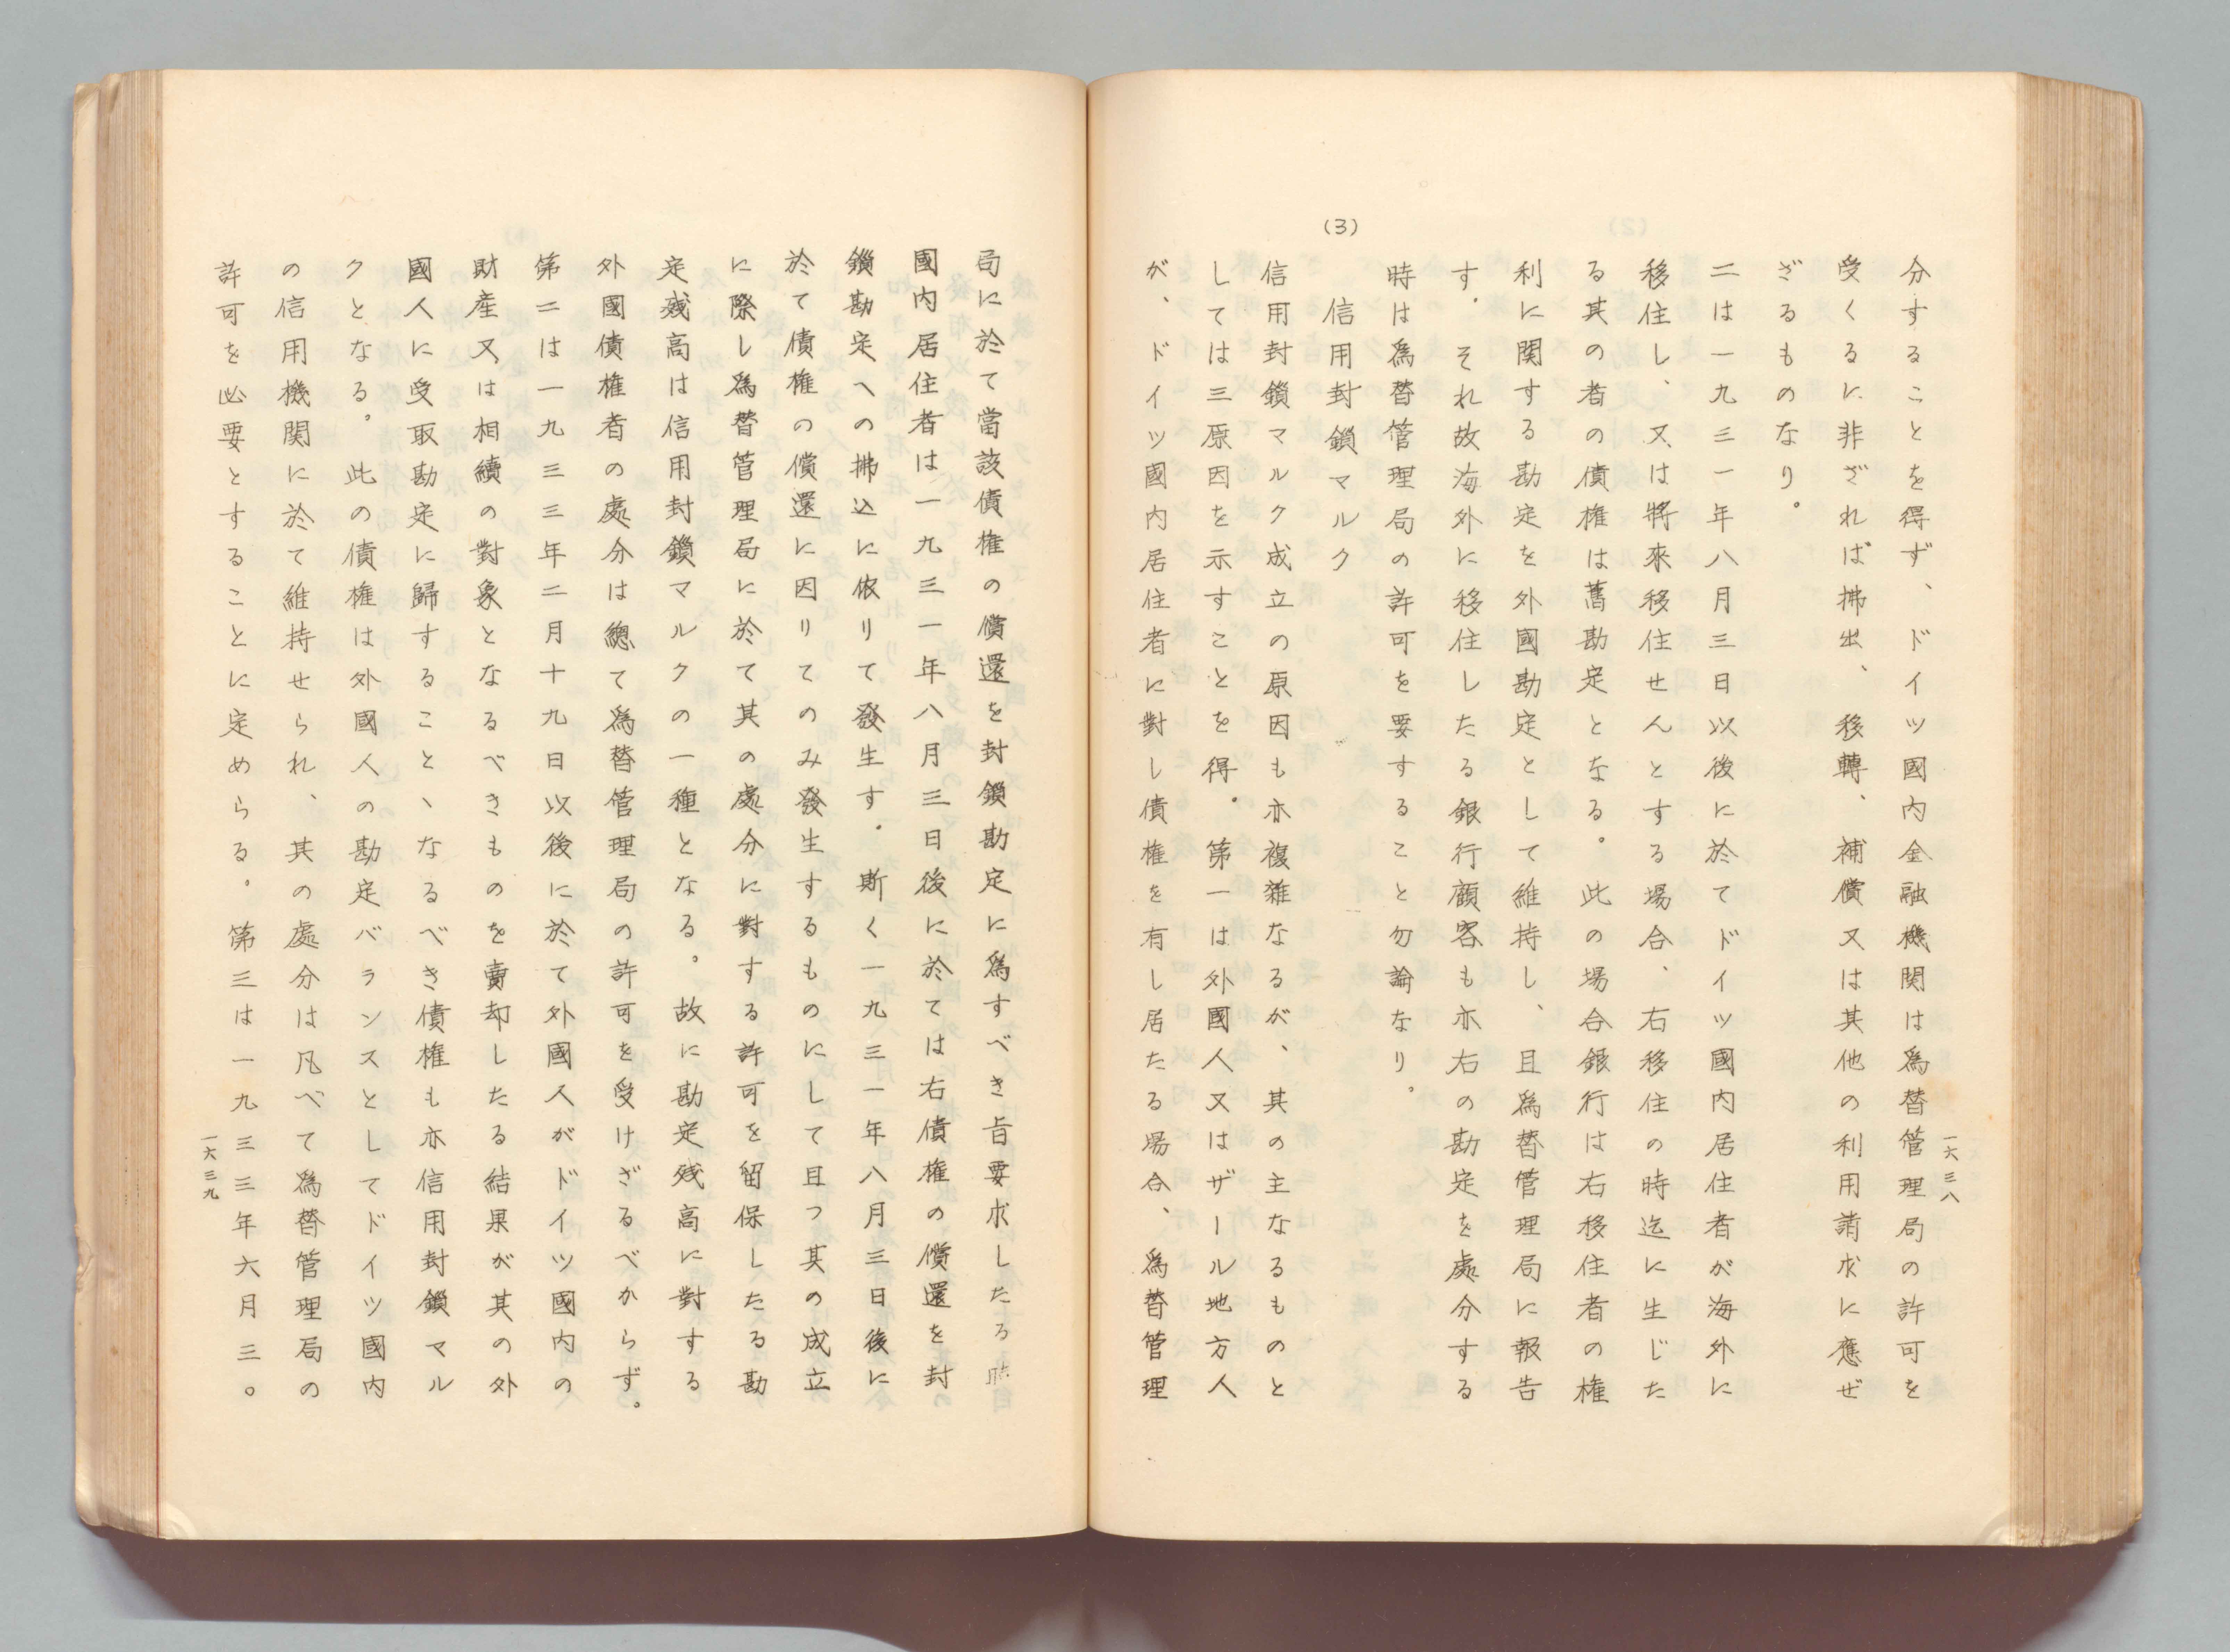 分することを得ず、ドイツ國内金融機関は為替管理局の許可を
受くるに非ざれば拂出、移轉、補償又は其他の利用請求に應ぜ
ざるものなり。
二は一九三一年八月三日以後に於てドイツ國内居住者が海外に
移住し、又は將來移住せんとする場合、右移住の時迄に生じた
る其の者の債権は舊勘定となる。此の場合銀行は右移住者の権
利に関する勘定を外國勘定として維持し、且為替管理局に報告
す。それ故海外に移住したる銀行顧客も亦右の勘定を處分する
時は為替管理局の許可を要すること勿論なり。
(3)
信用封鎖マルク
信用封鎖マルク成立の原因も亦複雜なるが、其の主なるものと
しては三原因を示すことを得。第一は外國人又はザール地方人
が、ドイツ國内居住者に對し債権を有し居たる場合、為替管理
一六三八
局に於て當該債権の償還を封鎖勘定に為すべき旨要求したる時
國内居住者は一九三一年八月三日後に於ては右債権の償還を封
鎖勘定への拂込に依りて發生す。斯く一九三一年八月三日後に
於て債権の償還に因りてのみ發生するものにして且つ其の成立
に際し為替管理局に於て其の處分に對する許可を留保したる勘
定残高は信用封鎖マルクの一種となる。故に勘定残高に對する
外國債権者の處分は總て為替管理局の許可を受けざるべからず。
第二は一九三三年二月十九日以後に於て外國人がドイツ國内の
財産又は相續の對象となるべきものを賣却したる結果が其の外
國人に受取勘定に歸することゝなるべき債権も亦信用封鎖マル
クとなる。此の債権は外國人の勘定バランスとしてドイツ國内
の信用機関に於て維持せられ、其の處分は凡べて為替管理局の
許可を必要とすることに定めらる。第三は一九三三年六月三〇
一六三九